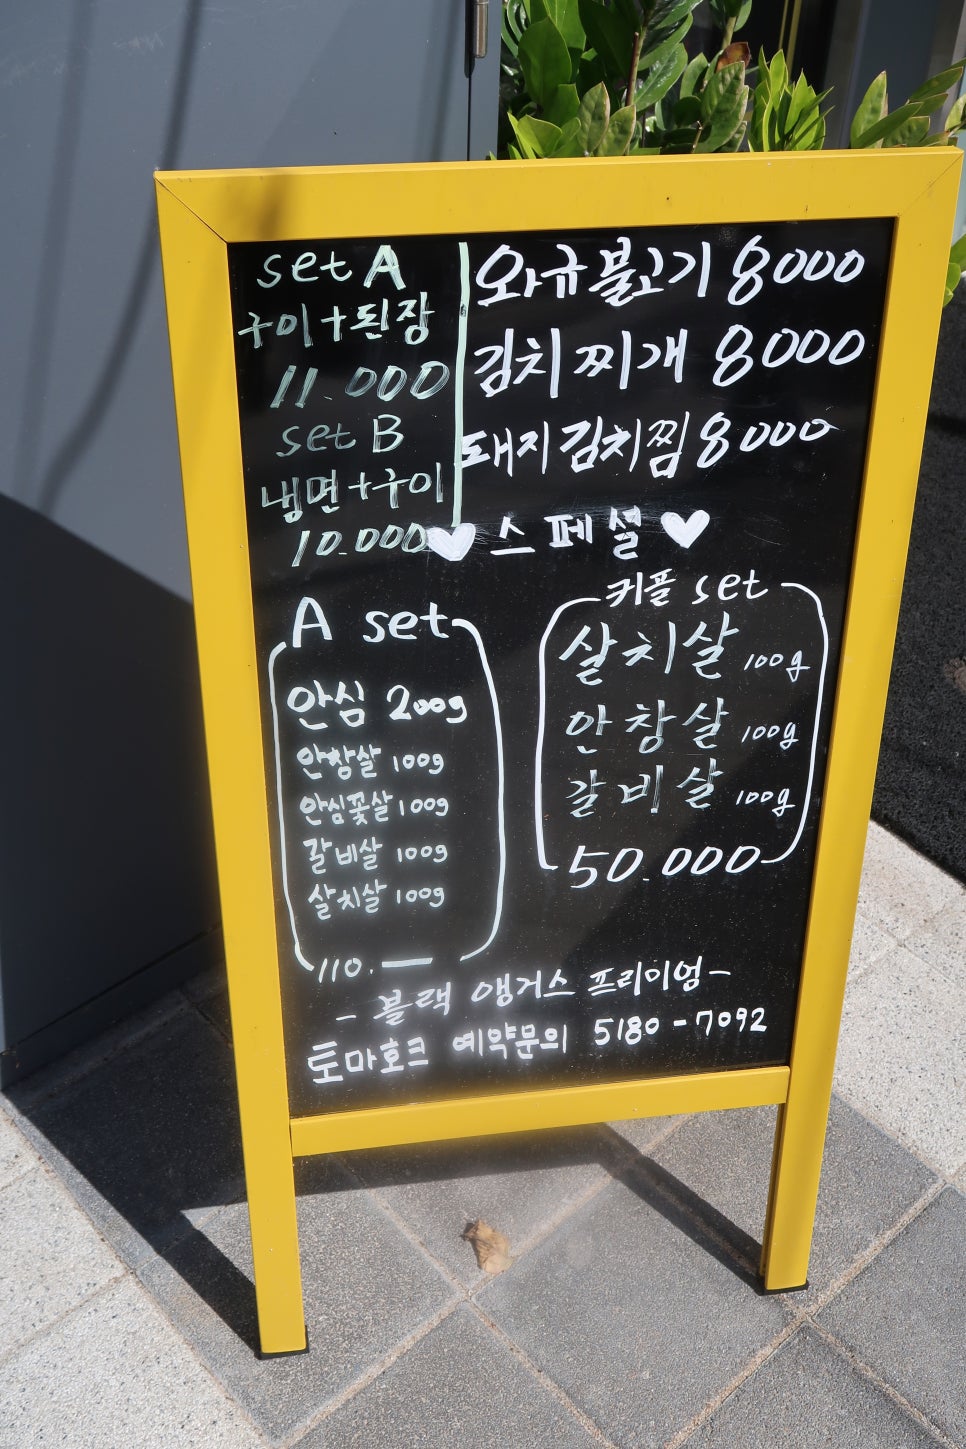 set A
구이+된장
11.000
set B
냉면+구이
10.000
와규불고기 8000
김치찌개 8000
돼지김치찜 8000
♥ 스페셜 ♥
A set
안심 200g
안창살 100g
안심꽃살 100g
갈비살 100g
살치살 100g
110.—
커플 set
살치살 100g
안창살 100g
갈비살 100g
50.000
- 블랙 앵거스 프리미엄 -
토마호크 예약문의 5180-7092